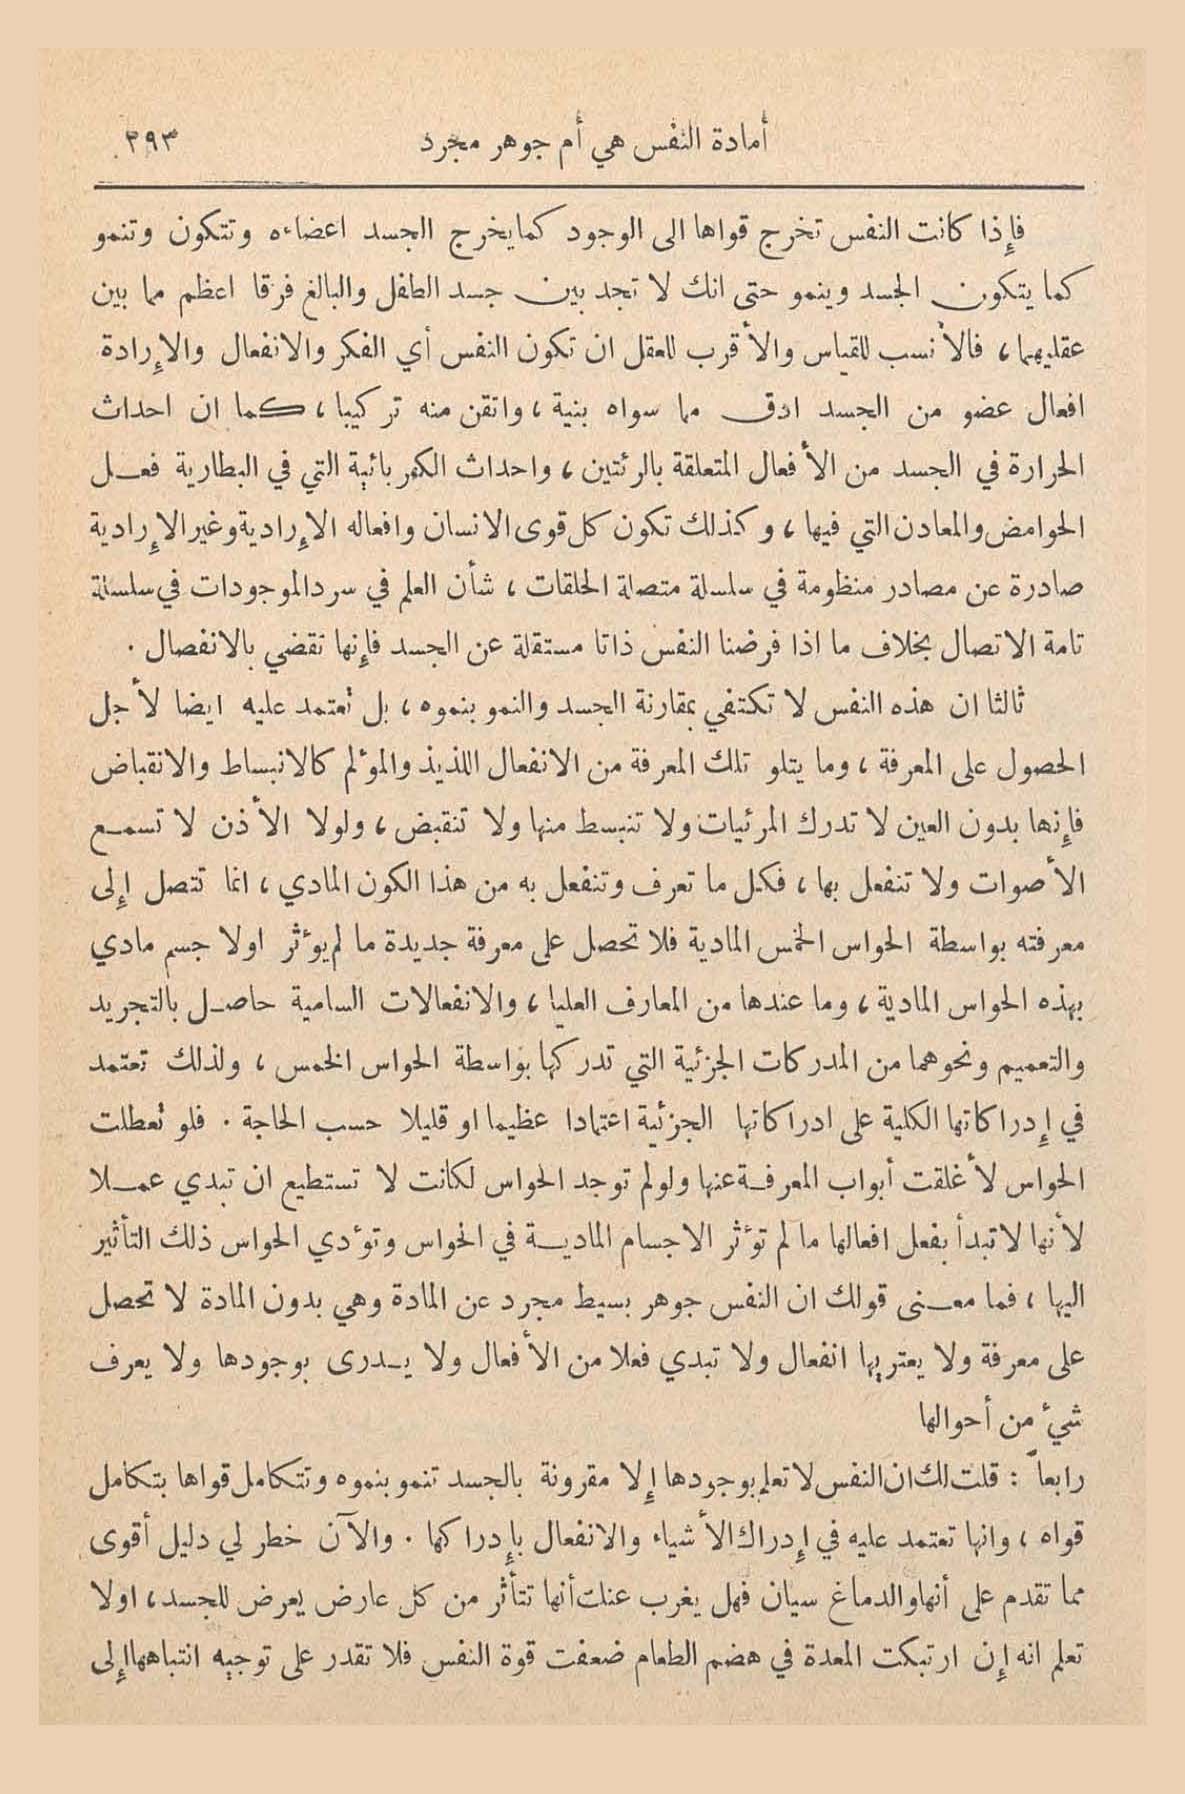 أمادة النفس هي أم جوهر مجرد ٣٩٣
فإِذا كانت النفس تخرج قواها الى الوجود كما يخرج الجسد اعضاءه وتتكون وتنمو
كما يتكون الجسد وينمو حتى انك لا تجد بين جسد الطفل والبالغ فرقا اعظم مما بين
عقليهما، فالأنسب للقياس والأقرب للعقل ان تكون النفس أي الفكر والانفعال والإِرادة
افعال عضو من الجسد ادق مما سواه بنية، واتقن منه تركيبا، كما ان احداث
الحرارة في الجسد من الأفعال المتعلقة بالرئتين، واحداث الكهربائية التي في البطارية فعل
الحوامض والمعادن التي فيها، وكذلك تكون كل قوى الانسان وافعاله الإِرادية وغير الإِرادية
صادرة عن مصادر منظومة في سلسلة متصلة الحلقات، شأن العلم في سرد الموجودات في سلسلة
تامة الاتصال بخلاف ما اذا فرضنا النفس ذاتا مستقلة عن الجسد فإِنها تقضي بالانفصال ٠
ثالثا ان هذه النفس لا تكتفي بمقارنة الجسد والنمو بنموه، بل تعتمد عليه ايضا لأجل
الحصول على المعرفة، وما يتلو تلك المعرفة من الانفعال اللذيذ والمؤلم كالانبساط والانقباض
فإِنها بدون العين لا تدرك المرئيات ولا تنبسط منها ولا تنقبض، ولولا الأذن لا تسمع
الأصوات ولا تنفعل بها، فكل ما تعرف وتنفعل به من هذا الكون المادي، انما تتصل إِلى
معرفته بواسطة الحواس الخمس المادية فلا تحصل على معرفة جديدة ما لم يؤثر اولا جسم مادي
بهذه الحواس المادية، وما عندها من المعارف العليا، والانفعالات السامية حاصل بالتجريد
والتعميم ونحوهما من المدركات الجزئية التي تدركها بواسطة الحواس الخمس، ولذلك تعتمد
في إِدراكاتها الكلية على ادراكاتها الجزئية اعتمادا عظيما او قليلا حسب الحاجة ٠ فلو تعطلت
الحواس لأغلقت أبواب المعرفة عنها ولولم توجد الحواس لكانت لا تستطيع ان تبدي عملا
لأنها لا تبدأ بفعل افعالها ما لم تؤثر الاجسام المادية في الحواس وتؤدي الحواس ذلك التأثير
اليها، فما معنى قولك ان النفس جوهر بسيط مجرد عن المادة وهي بدون المادة لا تحصل
على معرفة ولا يعتريها انفعال ولا تبدي فعلا من الأفعال ولا يدرى بوجودها ولا يعرف
شيء من أحوالها
رابعاً : قلت لك ان النفس لا تعلم بوجودها إِلا مقرونة بالجسد تنمو بنموه وتتكامل قواها بتكامل
قواه، وانها تعتمد عليه في إِدراك الأشياء والانفعال بإِدراكها ٠ والآن خطر لي دليل أقوى
مما تقدم على أنها والدماغ سيان فهل يغرب عنك أنها تتأثر من كل عارض يعرض للجسد، اولا
تعلم انه إِن ارتبكت المعدة في هضم الطعام ضعفت قوة النفس فلا تقدر على توجيه انتباهها إِلى